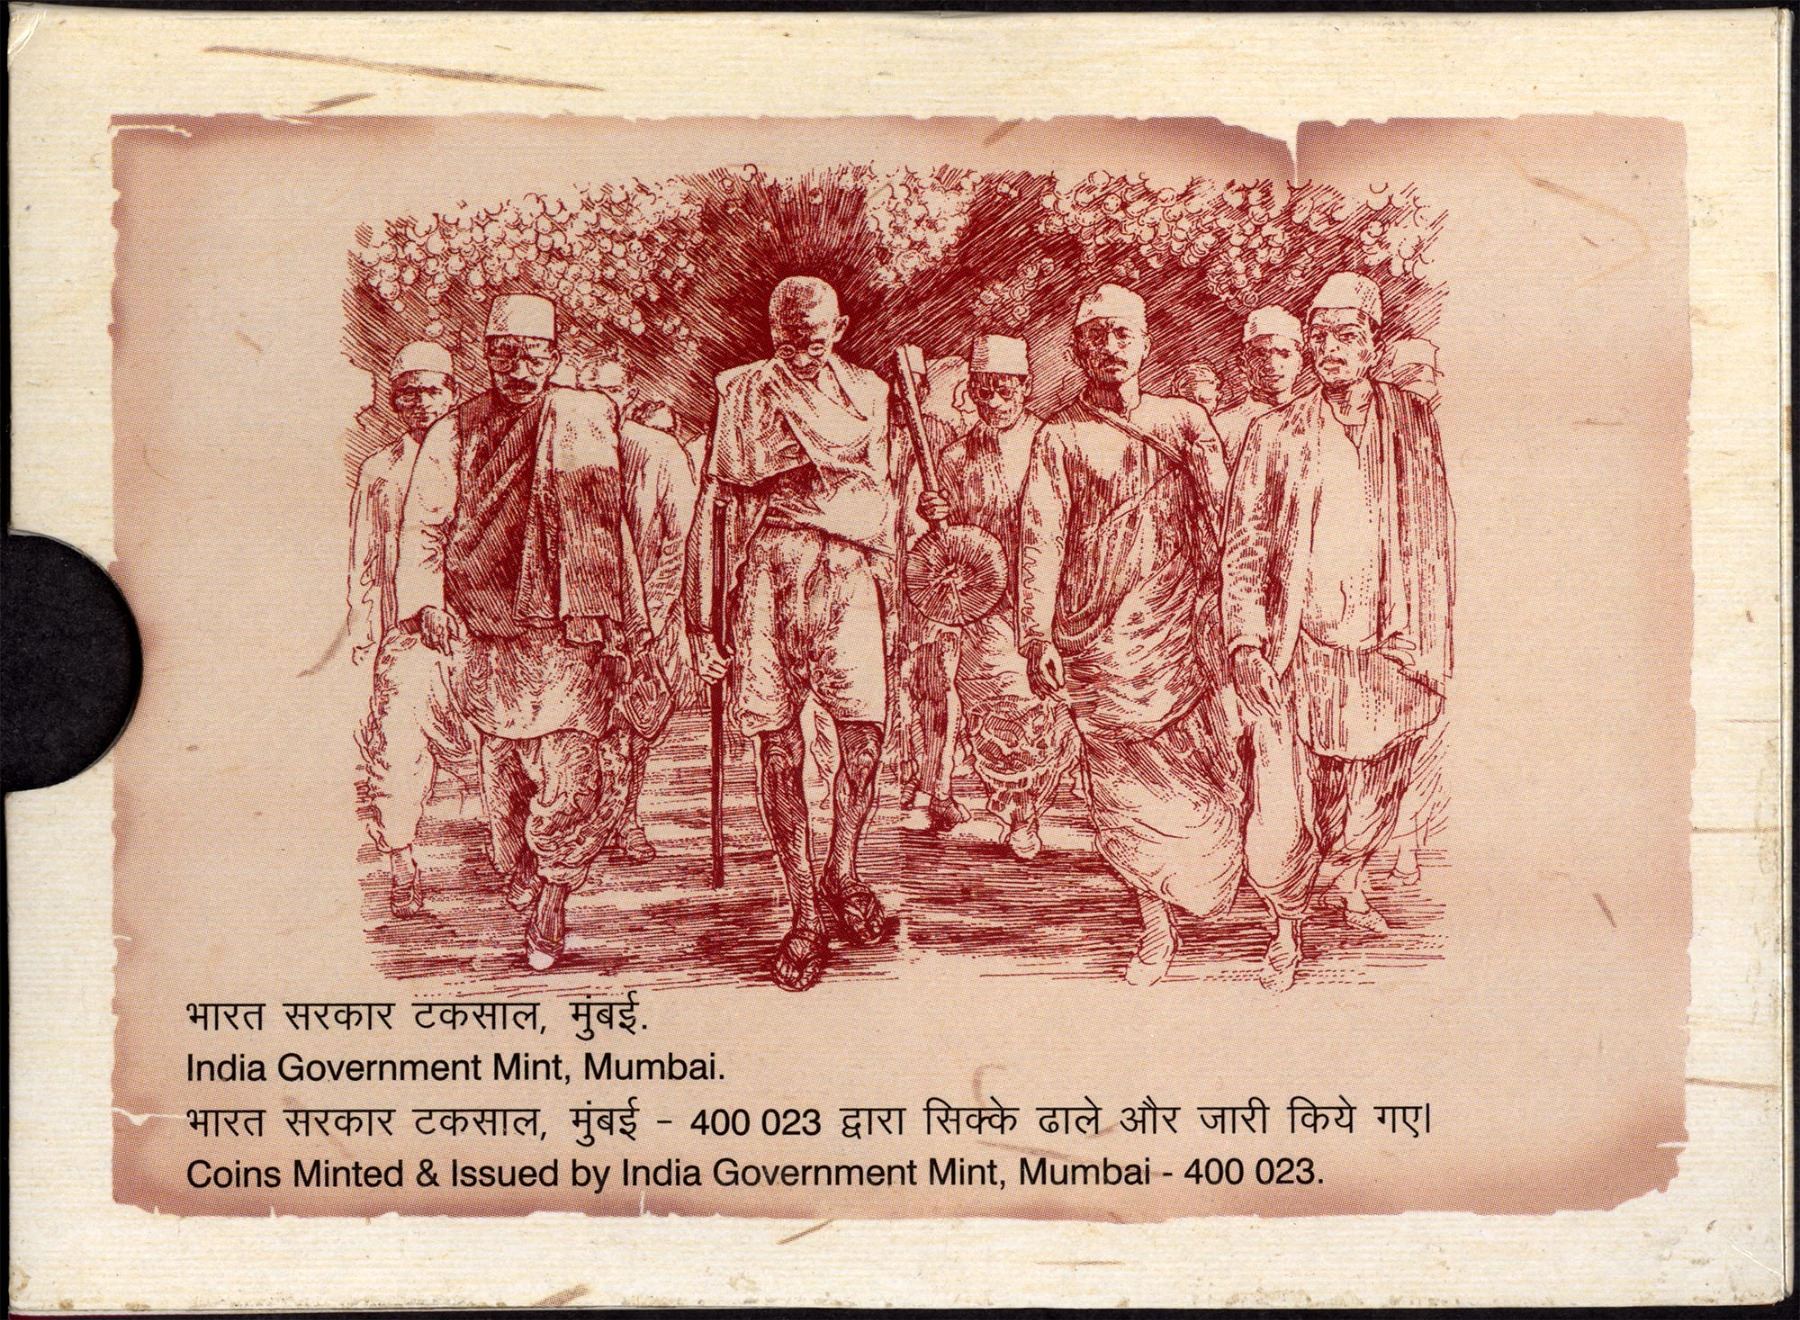 भारत सरकार टकसाल, मुंबई.
India Government Mint, Mumbai.
भारत सरकार टकसाल, मुंबई - 400 023 द्वारा सिक्के ढाले और जारी किये गए।
Coins Minted & Issued by India Government Mint, Mumbai - 400 023.